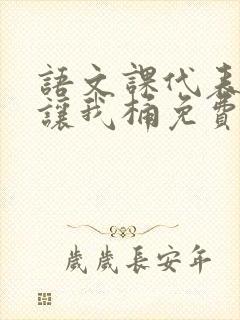 語文課代表
讓我桶免費
歲歲長安年